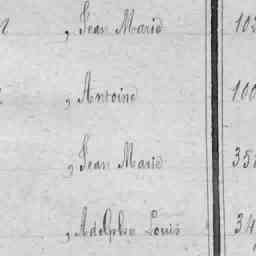 , Jean Marie
, Antoine 100
, Jean Marie
, Adolphe Louis